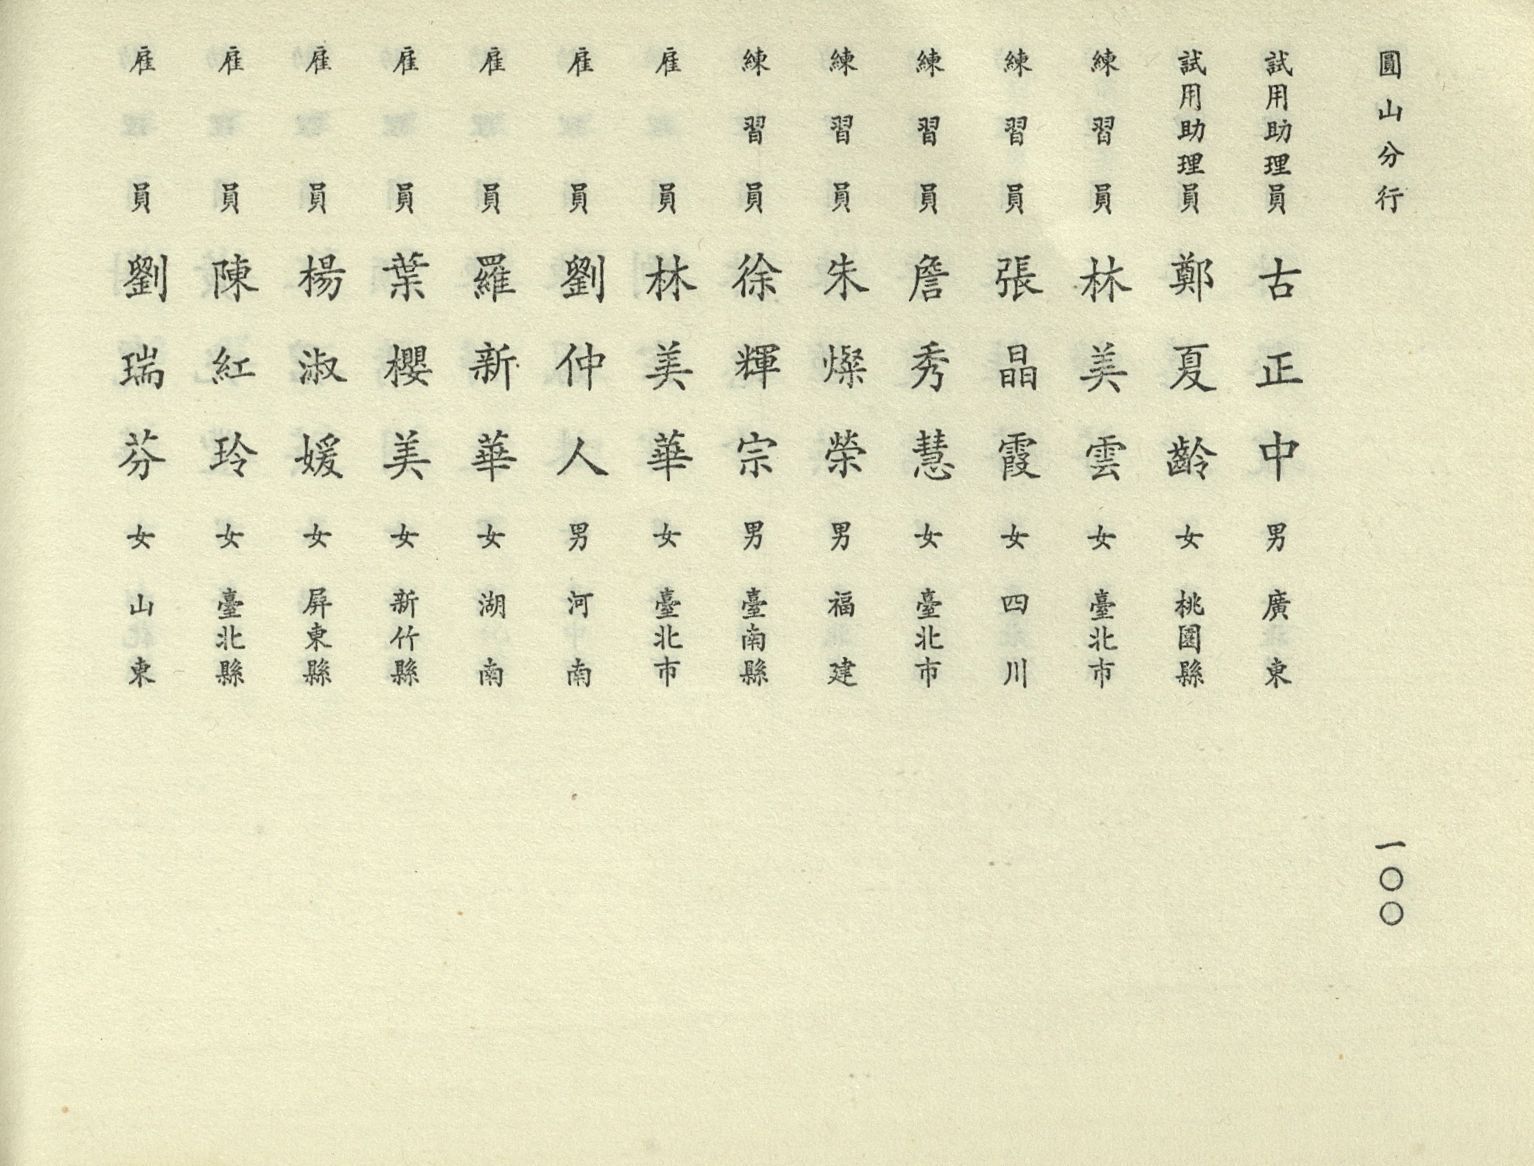 圓山分行 一〇〇
試用助理員 古正中 男 廣東
試用助理員 鄭夏齡 女 桃園縣
練習員 林美雲 女 臺北市
練習員 張晶霞 女 四川
練習員 詹秀慧 女 臺北市
練習員 朱燦榮 男 福建
練習員 徐輝宗 男 臺南縣
雇員 林美華 女 臺北市
雇員 劉仲人 男 河南
雇員 羅新華 女 湖南
雇員 葉櫻美 女 新竹縣
雇員 楊淑媛 女 屏東縣
雇員 陳紅玲 女 臺北縣
雇員 劉瑞芬 女 山東